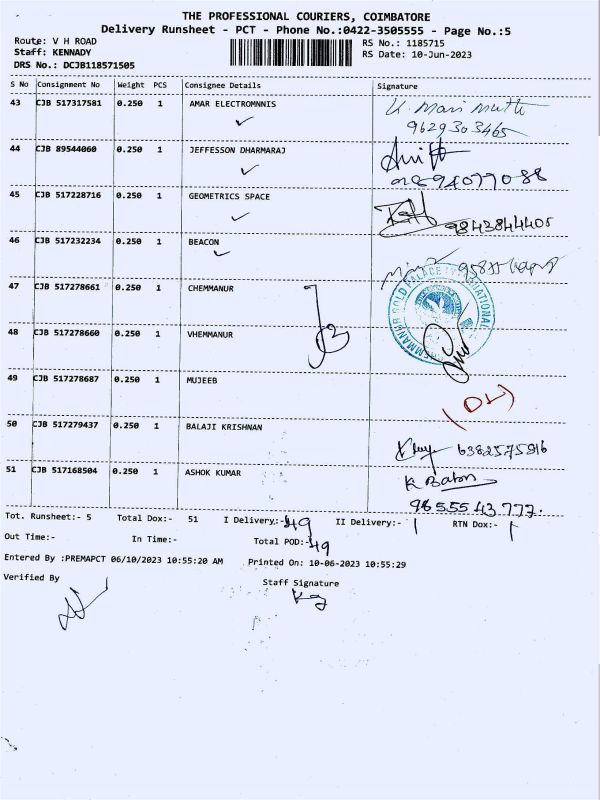 THE PROFESSIONAL COURIERS, COIMBATORE
Delivery Runsheet - PCT - Phone No.:0422-3505555 - Page No.:5
Route: V H ROAD RS No.: 1185715
Staff: KENNADY RS Date: 10-Jun-2023
DRS No.: DCJB118571505
S No Consignment No Weight PCS Consignee Details Signature
43 CJB 517317581 0.250 1 AMAR ELECTROMNNIS K. Mari Muthu
9629303465
44 CJB 89544060 0.250 1 JEFFESSON DHARMARAJ
45 CJB 517228716 0.250 1 GEOMETRICS SPACE 9843844405
46 CJB 517232234 0.250 1 BEACON
47 CJB 517278661 0.250 1 CHEMMANUR
CHEMMANUR GOLD PALACE INTERNATIONAL
48 CJB 517278660 0.250 1 VHEMMANUR
49 CJB 517278687 0.250 1 MUJEEB (DL)
50 CJB 517279437 0.250 1 BALAJI KRISHNAN 6382575816
51 CJB 517168504 0.250 1 ASHOK KUMAR
9655543777.
Tot. Runsheet:- 5 Total Dox:- 51 I Delivery:- 49 II Delivery:- 1 RTN Dox:- 1
Out Time:- In Time:- Total POD:- 49
Entered By :PREMAPCT 06/10/2023 10:55:20 AM Printed On: 10-06-2023 10:55:29
Verified By Staff Signature